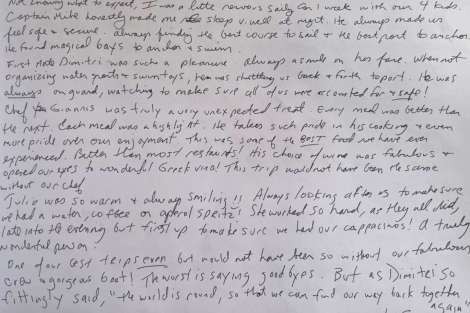 Not knowing what to expect, I was a little nervous sailing for 1 week with our 4 kids.
Captain Mike honestly made me sleep v. well at night. He always made us
feel safe & secure. always finding the best course to sail & the best port to anchor.
He found magical bays to anchor & swim.
First Mate Dimitri was such a pleasure. always a smile on his face. When not
organizing water sports & swim toys, he was shuttling us back & forth to port. He was
always on guard, watching to make sure all of us were accounted for & safe!
Chef Giannis was truly a very unexpected treat. Every meal was better than
the next. Each meal was a highlight. He takes such pride in his cooking & even
more pride over our enjoyment. This was some of the BEST food we have ever
experienced. Better than most restaurants! His choice of wine was fabulous &
opened our eyes to wonderful Greek vino! This trip would not have been the same
without our chef.
Julie was so warm & always smiling!! Always looking after us to make sure
we had a water, coffee or aperol spritz! She worked so hard, as they all did,
late into the evening but first up to make sure we had our cappucinos! A truly
wonderful person.
One of our best trips even but would not have been so without our fabulous
crew & gorgeous boat! The worst is saying goodbyes. But as Dimitri so
fittingly said, "the world is round, so that we can find our way back together
again"